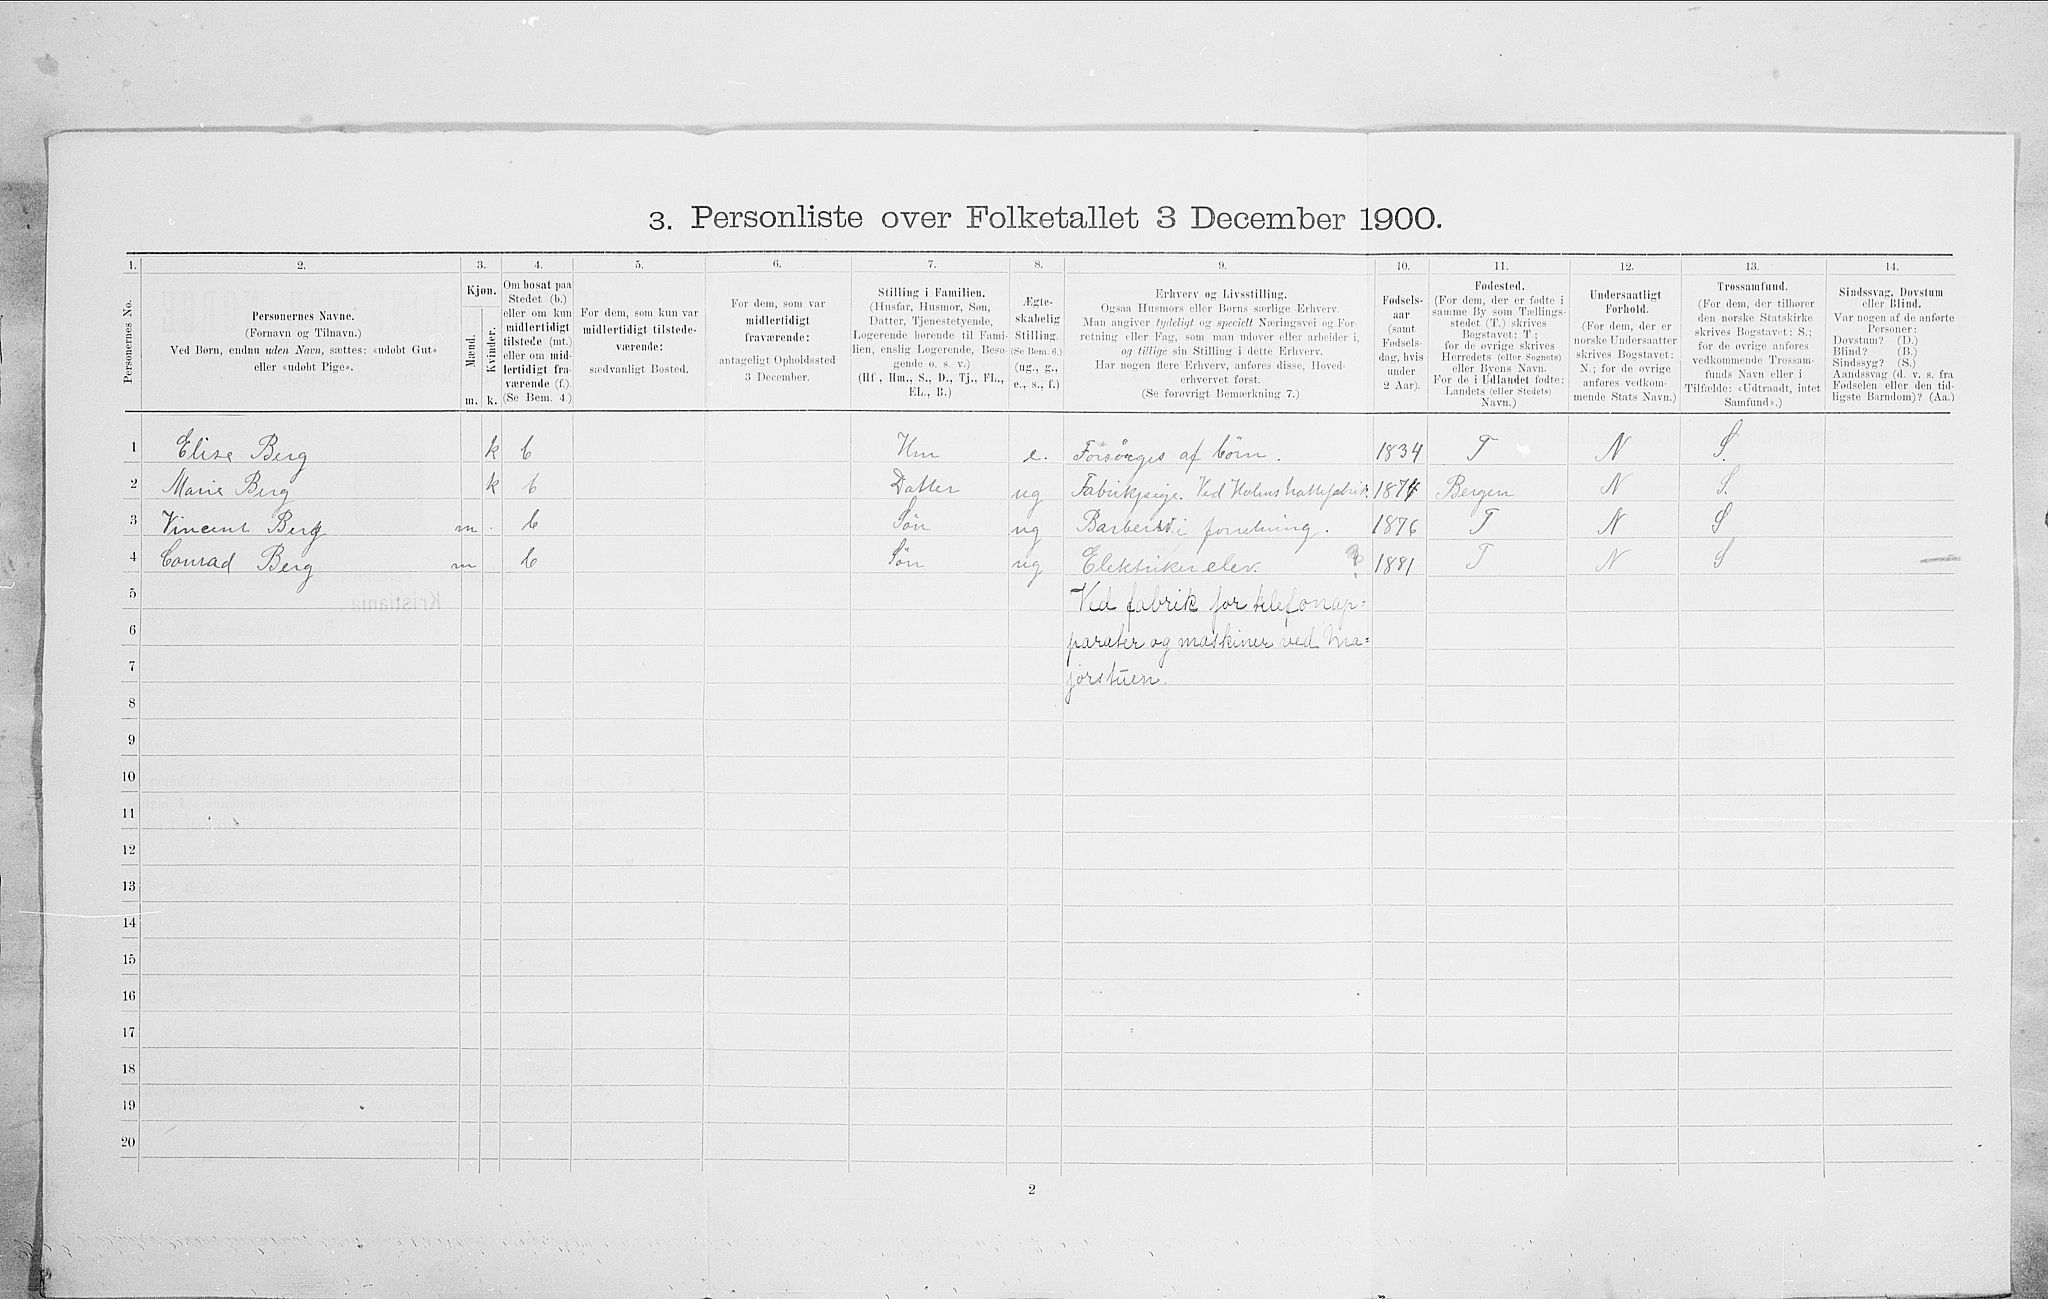 3. Personliste over Folketallet 3 December 1900.
1. 2. 3. 4. 5. 6. 7. 8. 9. 10. 11. 12. 13. 14.
Personernes No.
Personernes Navne.
(Fornavn og Tilnavn.)
Ved Børn, endnu uden Navn, sættes: «udøbt Gut»
eller «udøbt Pige».
Kjøn.
Mænd.
Kvinder.
m. k.
Om bosat paa
Stedet (b.)
eller om kun
midlertidigt
tilstede (mt.)
eller om mid-
lertidigt fra-
værende (f.)
(Se Bem. 4.)
For dem, som kun var
midlertidigt tilstede-
værende:
sædvanligt Bosted.
For dem, som var
midlertidigt
fraværende:
antageligt Opholdssted
3 December.
Stilling i Familien.
(Husfar, Husmor, Søn,
Datter, Tjenestetyende,
Logerende hørende til Fami-
lien, enslig Logerende, Besø-
gende o. s. v.)
(Hf., Hm., S., D., Tj., FL.,
EL., B.)
Ægte-
skabelig
Stilling.
(Se Bem. 6.)
(ug., g.,
e., s., f.)
Erhverv og Livsstilling.
Ogsaa Husmors eller Børns særlige Erhverv.
Man angiver tydeligt og specielt Næringsvei og For-
retning eller Fag, som man udøver eller arbeider i,
og tillige sin Stilling i dette Erhverv.
Har nogen flere Erhverv, anføres disse, Hoved-
erhvervet først.
(Se forøvrigt Bemærkning 7.)
Fødsels-
aar
(samt
Fødsels-
dag, hvis
under
2 Aar).
Fødested.
(For dem, der er fødte i
samme By som Tællings-
stedet (T.) skrives
Bogstavet: T;
for de øvrige skrives
Herredets (eller Sognets)
eller Byens Navn.
For de i Udlandet fødte:
Landets (eller Stedets)
Navn.)
Undersaatligt
Forhold.
(For dem, der er
norske Undersaatter
skrives Bogstavet:
N.; for de øvrige
anføres vedkom-
mende Stats Navn.)
Trossamfund.
(For dem, der tilhører
den norske Statskirke
skrives Bogstavet: S.;
for de øvrige anføres
vedkommende Trossam-
funds Navn eller i
Tilfælde: «Udtraadt, intet
Samfund».)
Sindssvag, Døvstum
eller Blind.
Var nogen af de anførte
Personer:
Døvstum? (D.)
Blind? (B.)
Sindssyg? (S.)
Aandssvag (d. v. s. fra
Fødselen eller den tid-
ligste Barndom)? (Aa.)
1 Elise Berg k b Hm e. Forsørges af børn. 1834 T N S.
2 Marie Berg k b Datter ug Fabrikpige. Ved Holms hattefabrik 1874 Bergen N S.
3 Vincent Berg m. b Søn ug Barber i forretning. 1876 T N S
4 Conrad Berg m b Søn ug Elektriker elev. ? 1881 T N S
5 Ved fabrik for telefonap-
6 parater og maskiner ved Ma-
7 jorstuen.
8
9
10
11
12
13
14
15
16
17
18
19
20
2